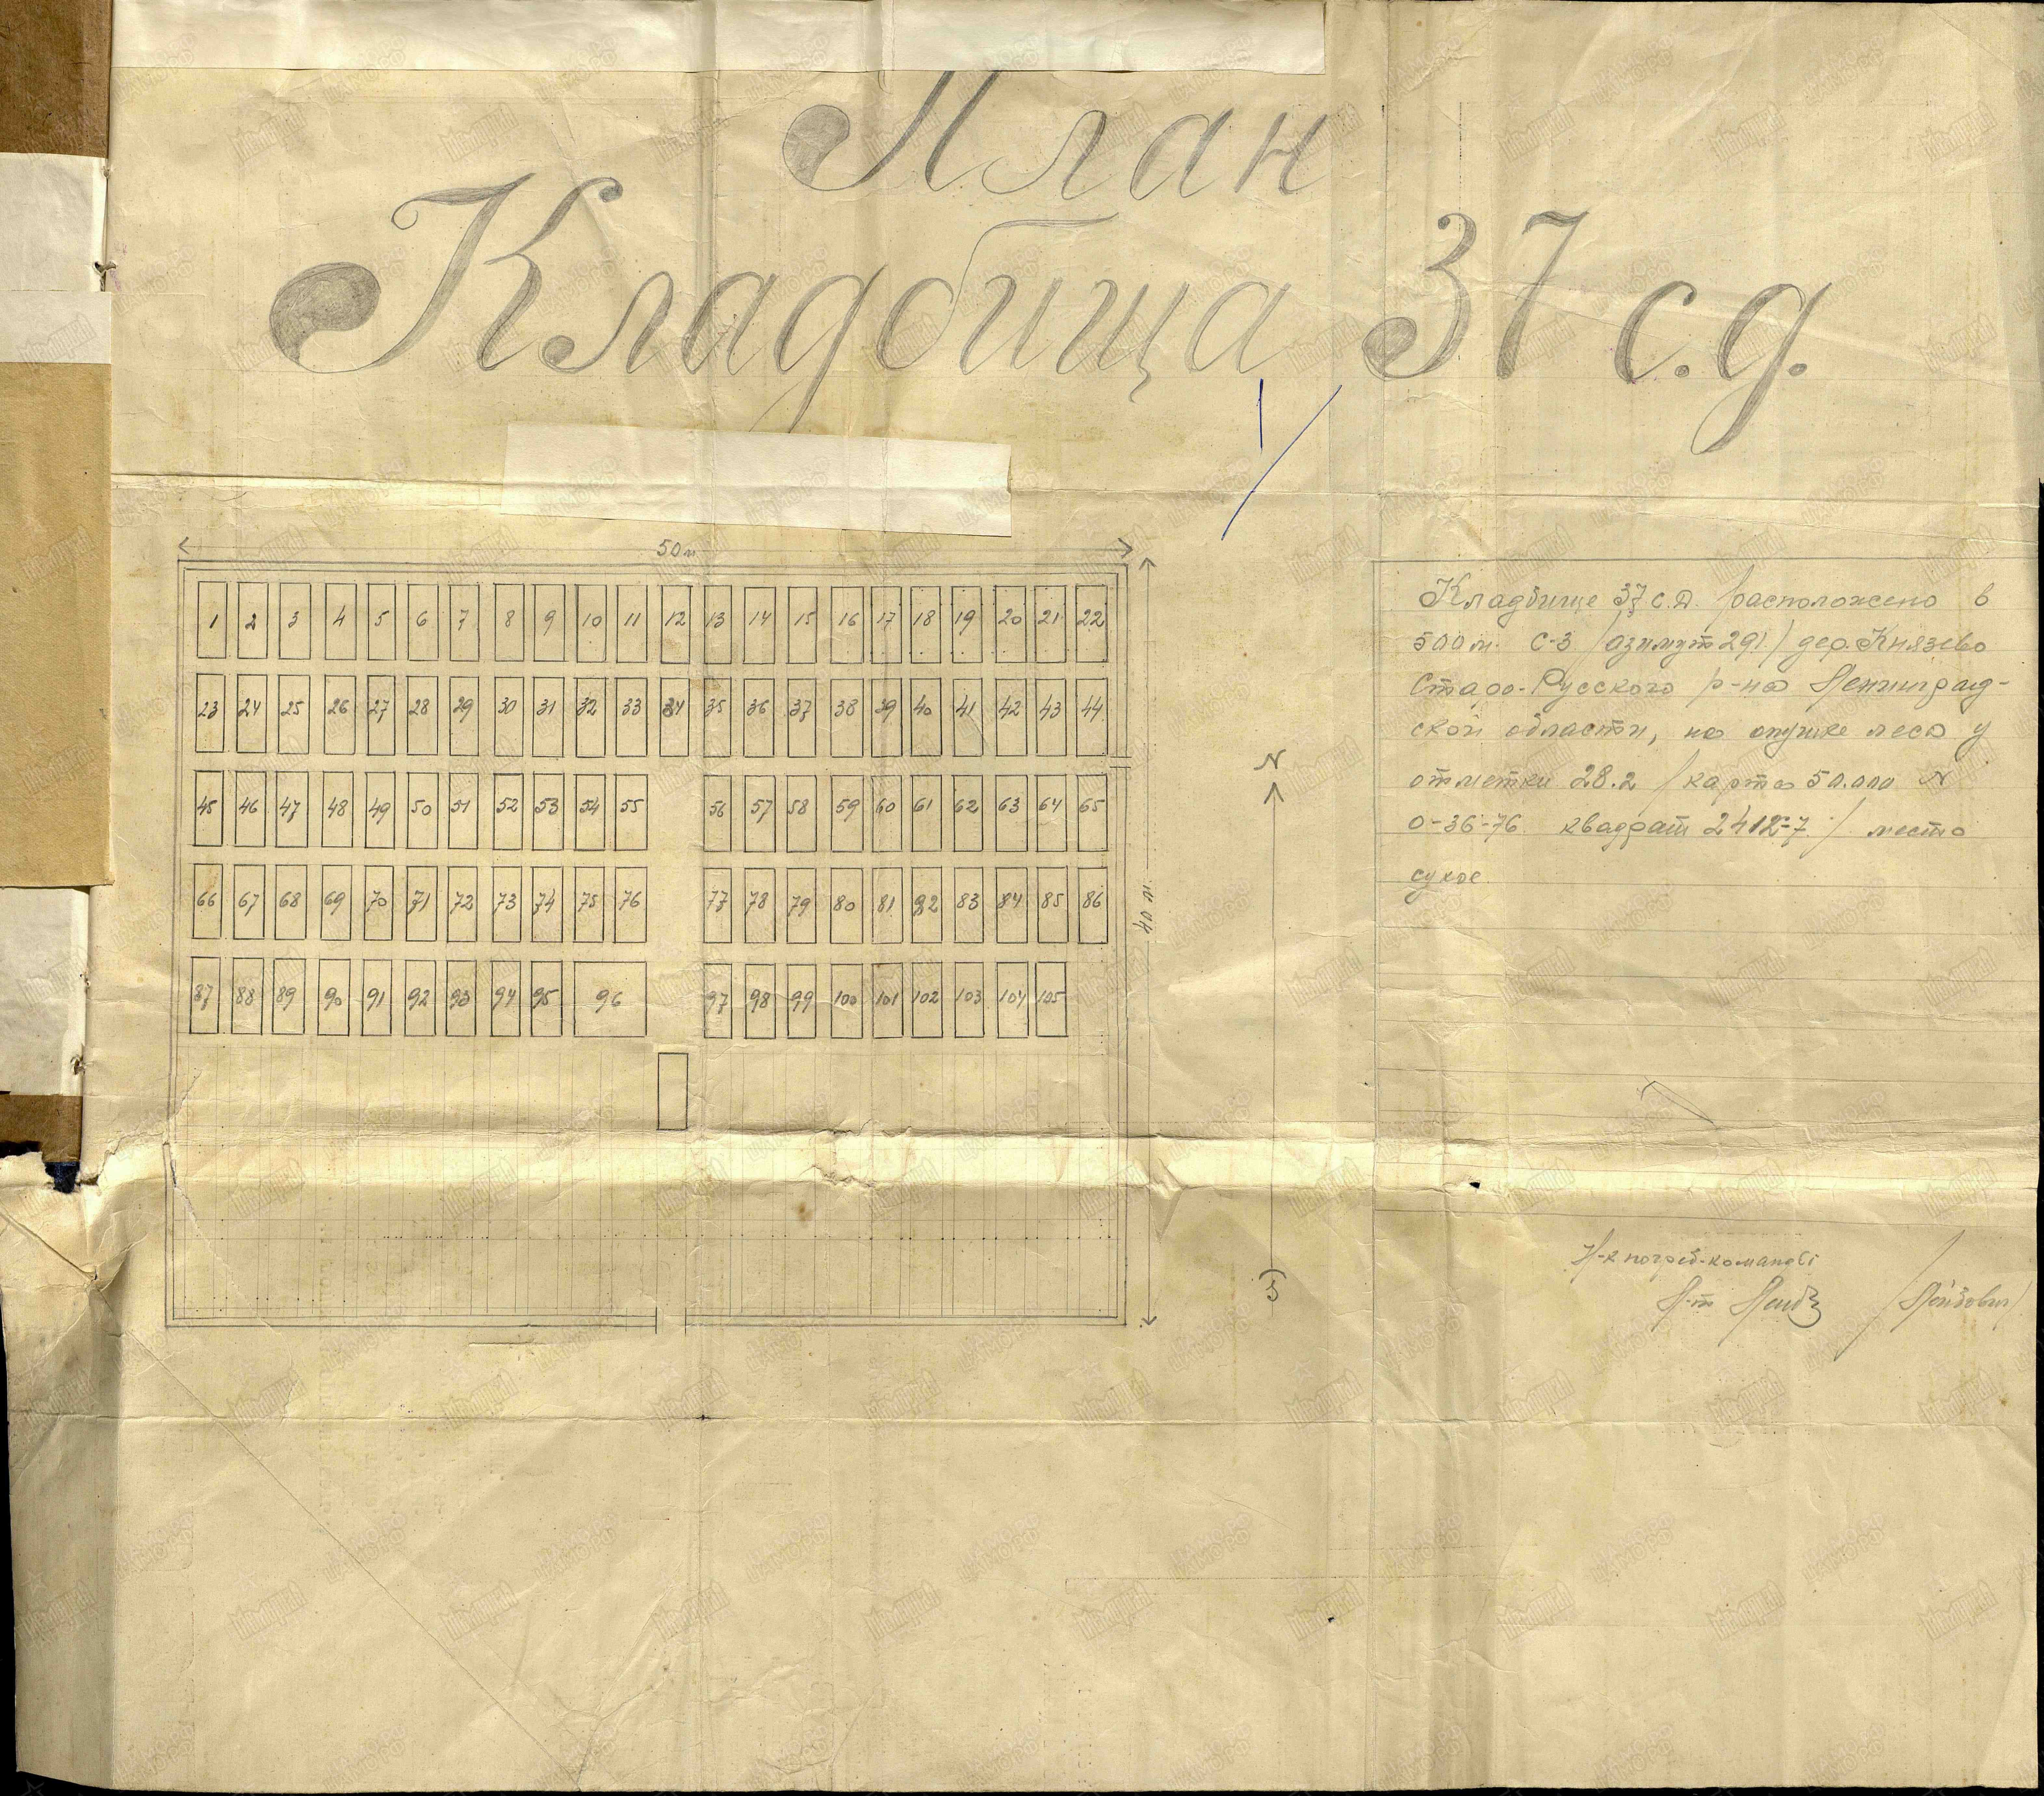 План
Кладбища 37 с.д.
50 м
1 2 3 4 5 6 7 8 9 10 11 12 13 14 15 16 17 18 19 20 21 22
23 24 25 26 27 28 29 30 31 32 33 34 35 36 37 38 39 40 41 42 43 44
45 46 47 48 49 50 51 52 53 54 55 56 57 58 59 60 61 62 63 64 65
66 67 68 69 70 71 72 73 74 75 76 77 78 79 80 81 82 83 84 85 86
87 88 89 90 91 92 93 94 95 96 97 98 99 100 101 102 103 104 105
40 м
N
Кладбище 37 с.д. расположено в
500 м. С-З /азимут 291/ дер. Князево
Старо-Русского р-на Ленинград-
ской области, на опушке леса у
отметки 28.2 /карта 50.000 N
О-36-76 квадрат 2412-7/ место
сухое
Н-к погреб-команды
Л-т